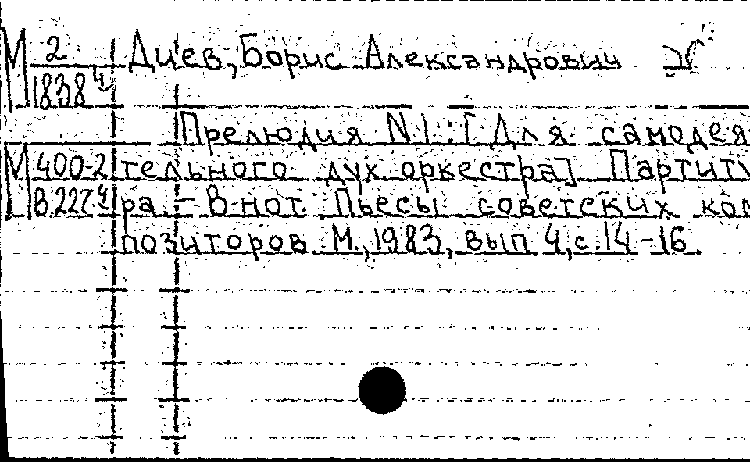 М 2 Диев, Борис Александрович
1838 ч
Прелюдия N1.: [Для самодея
М 400-2 тельного дух оркестра] Партиту
В 227 ч ра – В нот. Пьесы советских ком
позиторов М., 1983, вып 4, с. 14-16.